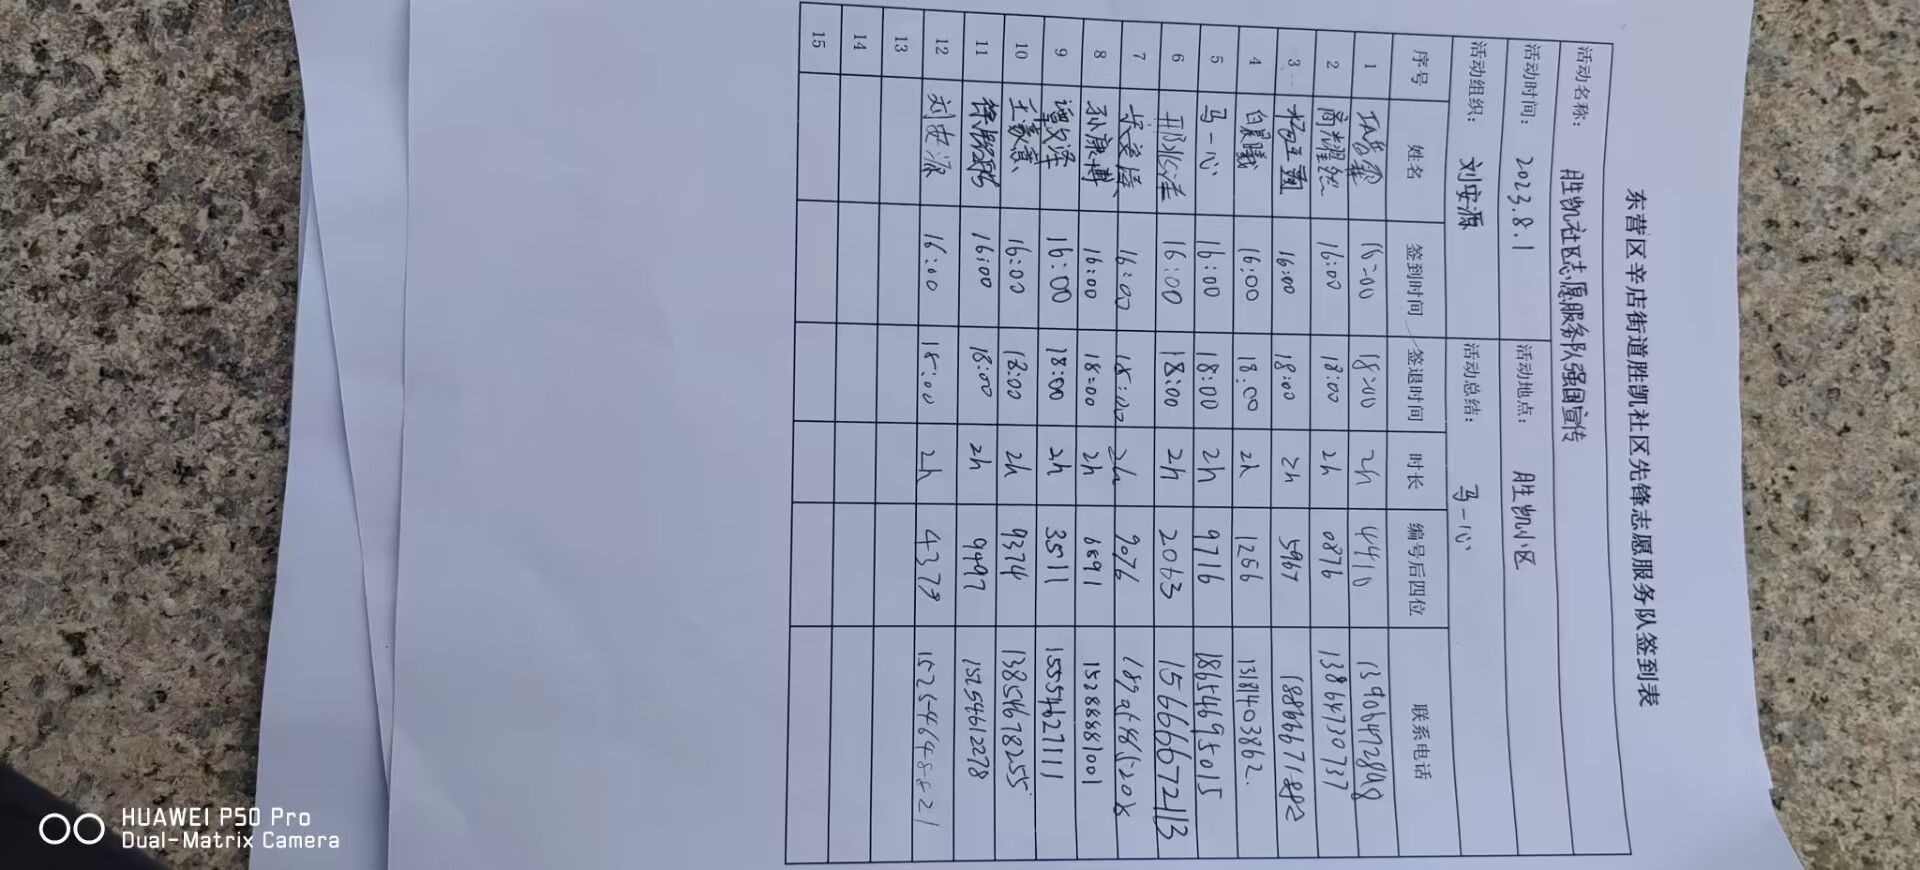 东营区辛店街道胜凯社区先锋志愿服务队签到表
活动名称： 胜凯社区志愿服务队强国宣传
活动时间： 2023.8.1 活动地点： 胜凯小区
活动组织： 刘安源 活动总结： 马一心
序号 姓名 签到时间 签退时间 时长 编号后四位 联系电话
1 16:00 18:00 2h 4410
2 高耀然 16:00 18:00 2h 0876 13864730737
3 16:00 18:00 2h 5967 18866671882
4 白晨曦 16:00 18:00 2h 1256 13181403862
5 马一心 16:00 18:00 2h 9716 18654695015
6 16:00 18:00 2h 2063 15666672113
7 16:00 18:00 2h 9076
8 孙康博 16:00 18:00 2h 6891 15288881001
9 谭文泽 16:00 18:00 2h 3511 15554627111
10 王家慧 16:00 18:00 2h 9374 13854678255
11 16:00 18:00 2h 9497 15254612278
12 刘安源 16:00 18:00 2h 4379 15254648821
13
14
15
HUAWEI P50 Pro
Dual-Matrix Camera